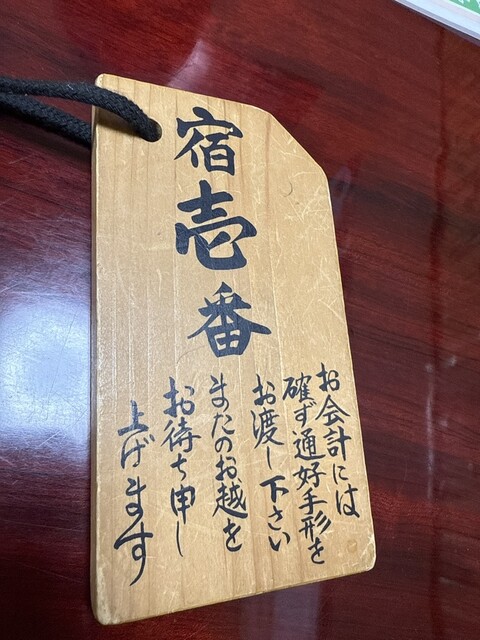 宿壱番
お会計には
確ず通好手形を
お渡し下さい
またのお越を
お待ち申し
上げます